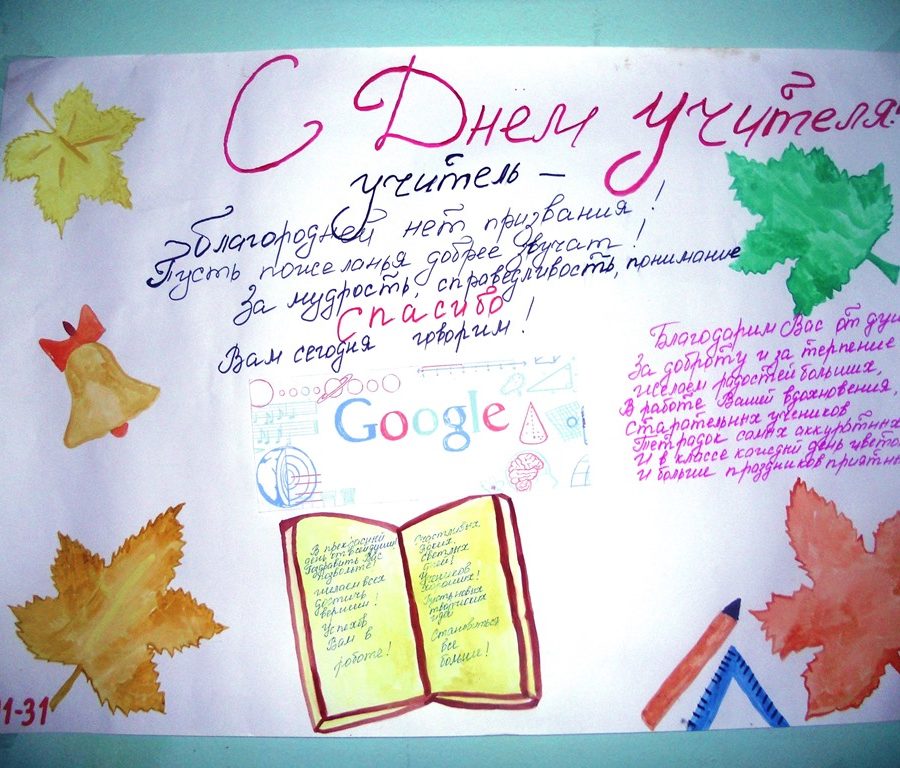 С Днем учителя!
учитель —
Благородней нет призвания!
Пусть пожеланья добрее звучат!
За мудрость, справедливость, понимание
Спасибо
Вам сегодня говорим!
Благодарим Вас от душ
За доброту и за терпение
желаем радостей больших,
В работе Вашей вдохновения,
Старательных учеников
Тетрадок самых аккуратных
И в классе каждый день цвето
И больше праздников приятн
Google
В прекрасный
день от всей души
Поздравить Вас
позвольте!
желаем всех
достичь
вершин!
Успехов
Вам в
работе!
Счастливых
ярких,
светлых
дней!
Учеников
хороших!
Пусть новых
творческих
идей
Становиться
все
больше!
11-31